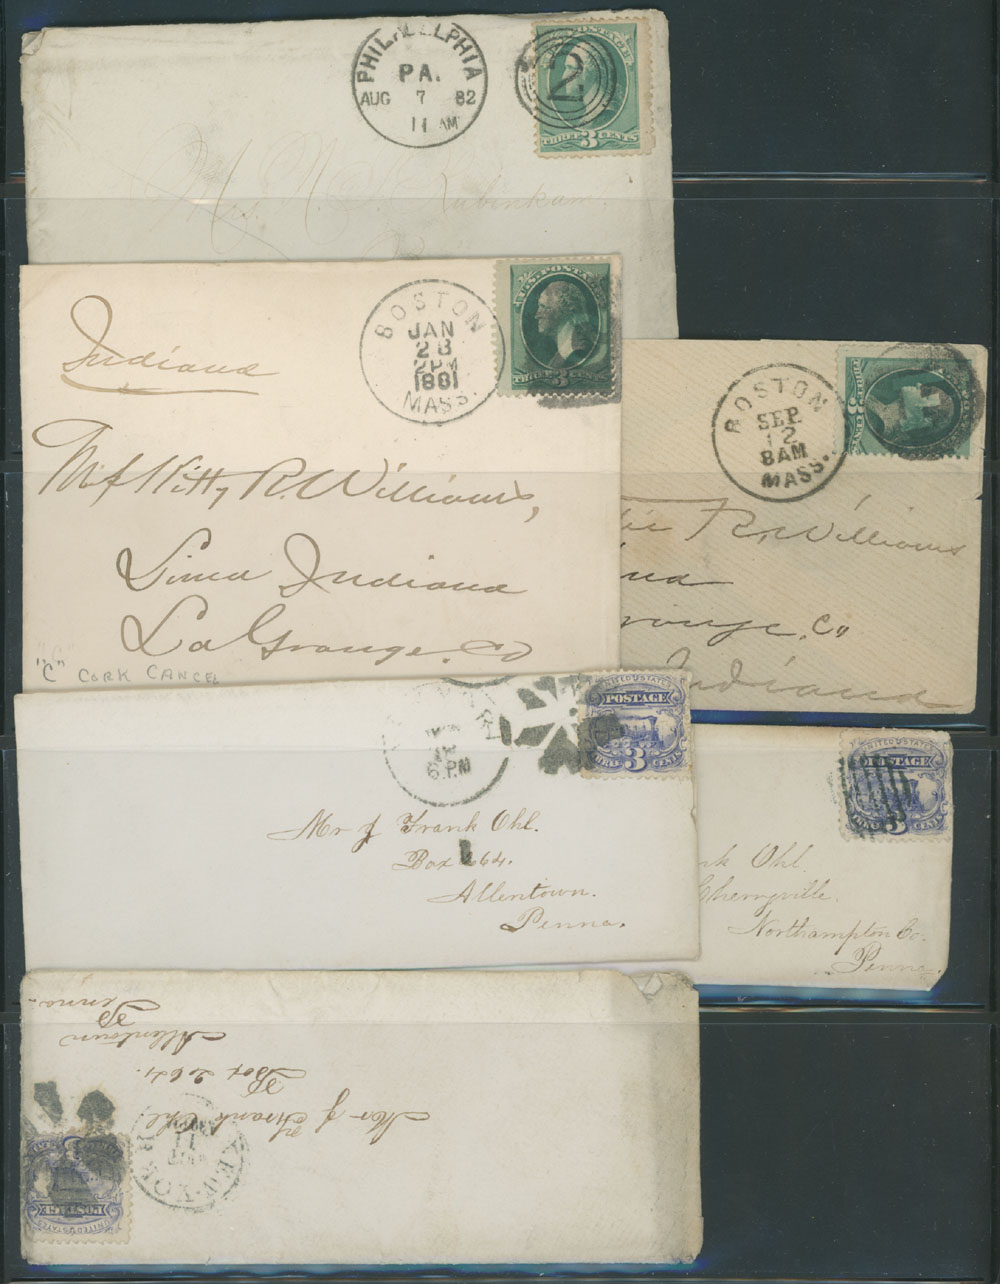 PHILADELPHIA
PA.
AUG 7 82
11 AM
2
POSTAGE
THREE 3 CENTS
Mrs. M. Rubinkam,
Indiana
BOSTON
JAN
28
2PM
1881
MASS.
U.S. POSTAGE
THREE 3 CENTS
Kitty R. Williams,
Lima Indiana
La Grange. Co
"C" CORK CANCEL
BOSTON
SEP.
12
8AM
MASS.
R. Williams
Co
Indiana
6 PM
UNITED STATES
POSTAGE
THREE 3 CENTS
Mr J Frank Ohl.
Box 264.
Allentown.
Penna.
UNITED STATES
POSTAGE
3 CENTS
Ohl.
Cherryville.
Northampton Co.
Penna.
Mr J Frank Ohl.
Box 264.
Allentown
Penna.
YORK
UNITED STATES
POSTAGE